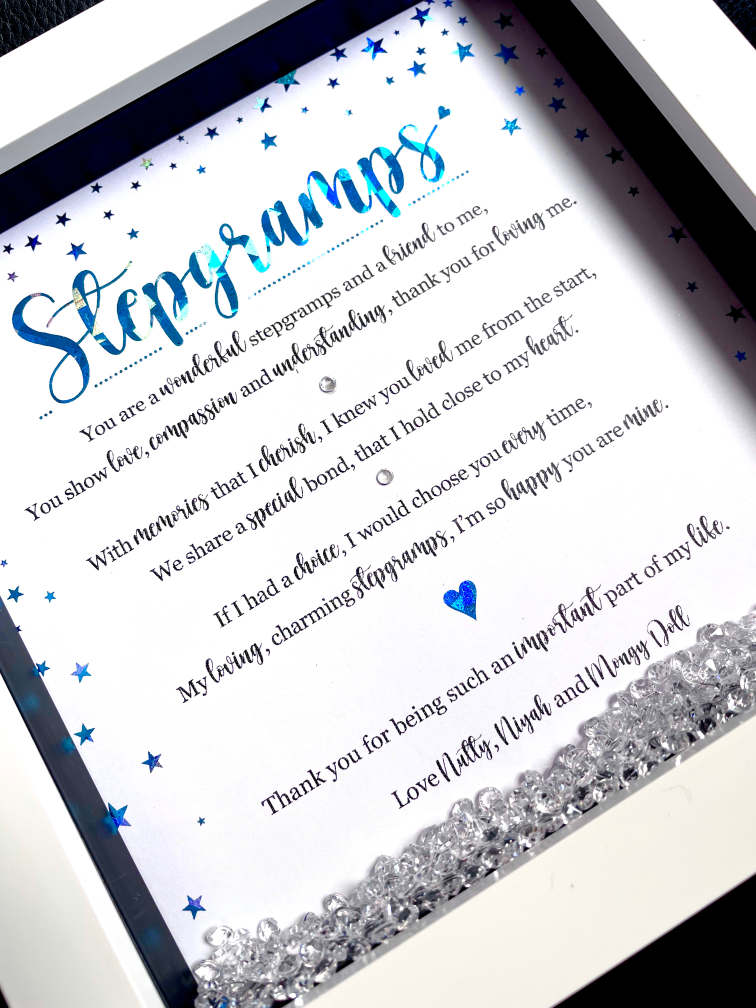 Stepgramps
You are a wonderful stepgramps and a friend to me,
You show love, compassion and understanding, thank you for loving me.
With memories that I cherish, I knew you loved me from the start,
We share a special bond, that I hold close to my heart.
If I had a choice, I would choose you every time,
My loving, charming stepgramps, I'm so happy you are mine.
Thank you for being such an important part of my life.
Love Nutty, Niyah and Mongy Doll